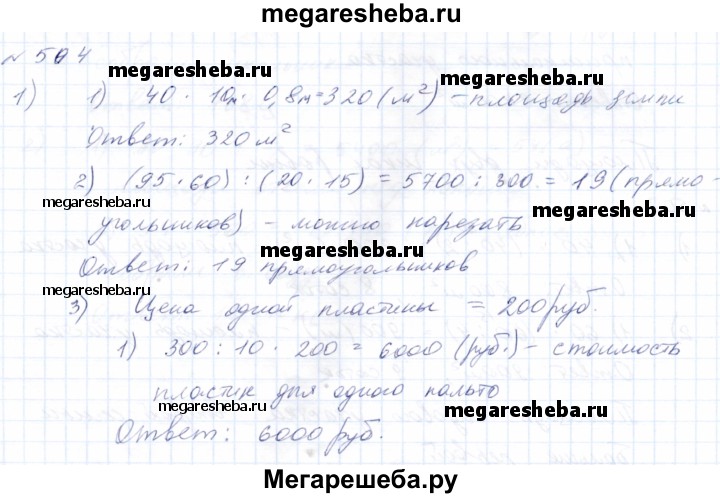 megaresheba.ru
№ 504
megaresheba.ru
1) 1) 40 · 10м · 0,8м = 320 (м²) – площадь земли
megaresheba.ru
Ответ: 320 м²
2) (95 · 60) : (20 · 15) = 5700 : 300 = 19 (прямо-
megaresheba.ru
угольников) – можно нарезать
megaresheba.ru
Ответ: 19 прямоугольников
megaresheba.ru
3) Цена одной пластины = 200 руб.
1) 300 : 10 · 200 = 6000 (руб.) – стоимость
пластик для одного пальто
megaresheba.ru
megaresheba.ru
Ответ: 6000 руб.
Мегарешеба.ру